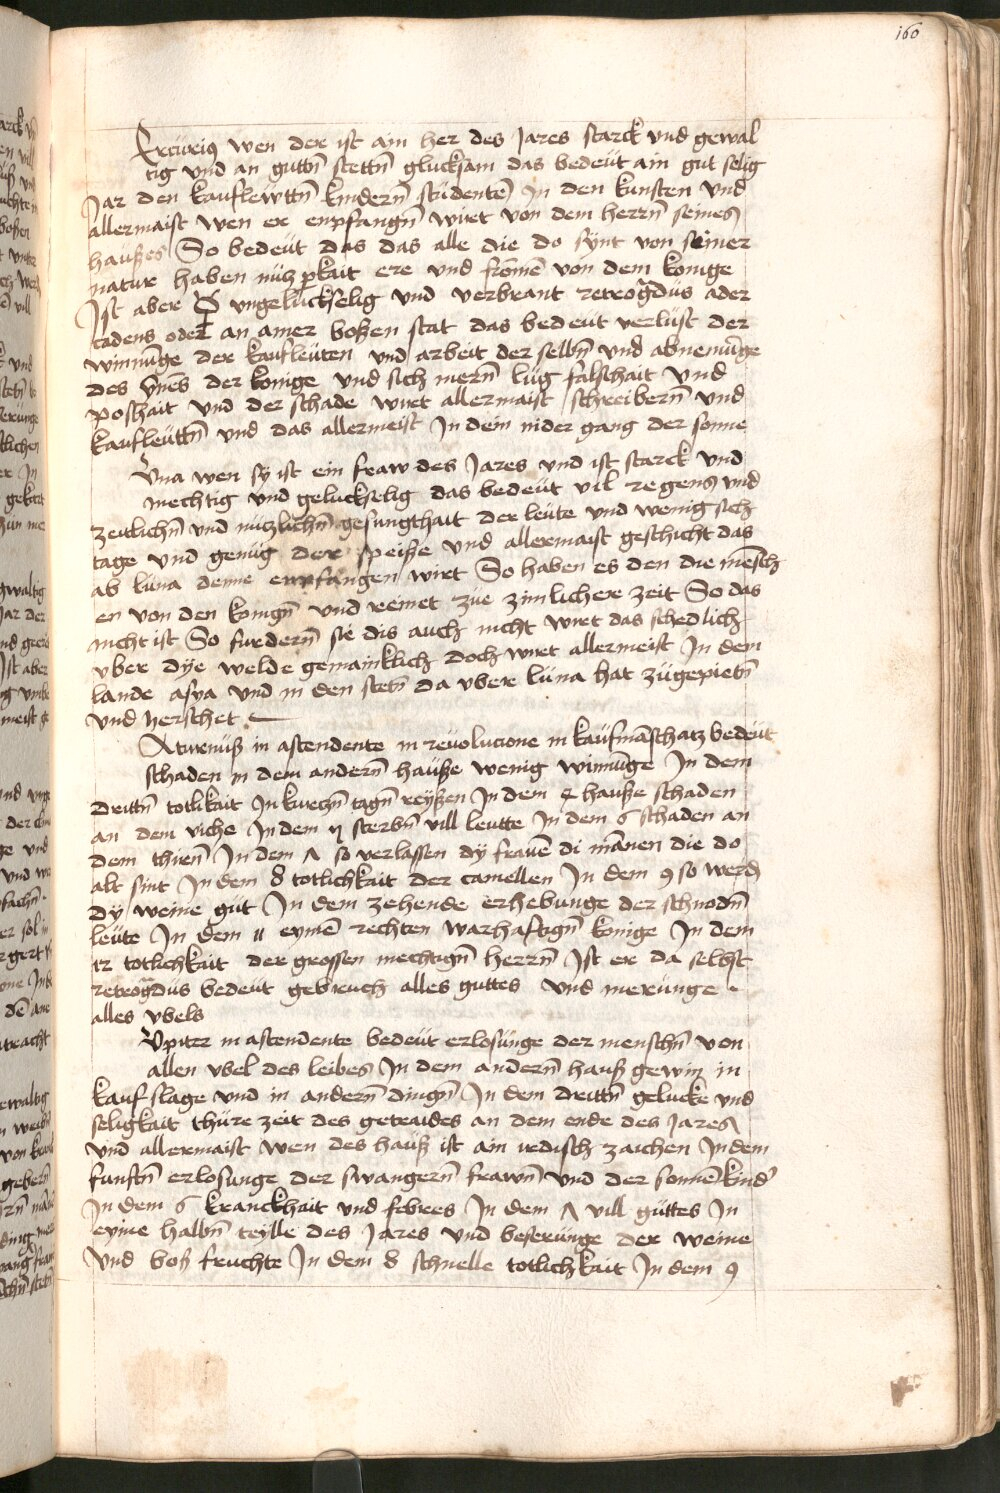 160
Ercurius wen der ist ain her des Jares starck vnd gewal
tig vnd an guttn̄ stettn̄ glucksam das bedeüt ain gut selig
Jar den kauflewttn̄ kindern̄ studente͂ In den kunsten vnd
allermaist wen er enpfangn̄ wirt von dem herrn̄ seines
haußes So bedeüt das das alle die do synt von seiner
natur haben nücz p̱kait ere vnd from̄e von dem konige
Ist aber ☿ vngeluckselig vnd verbrant retrog̃dus ader
cadens oder an ainer boßen stat das bedeüt verlust der
winnūge der kaufleüten vnd arbeit der selbn̄ vnd abnemūge
des der konige vnd sich mern̄ lüg falschait vnd
poschait vnd der schade wirt allermaist schreibern̄ vnd
kaufleüttn̄ vnd das allermeist In dem nider gang der sonne
Vna wen sy ist ein fraw des Jares vnd ist starck vnd
mechtig vnd geluckselig das bedeüt vil regens vnd
zeitlichn̄ vnd nüczlichn̄ gesungthait der leüte vnd wenig siech
tage vnd genüg der speiße vnd allermaist geschicht das
ab lüna denne enpfangen wirt So haben es den die mensch
en von den konign̄ vnd reinet zue zimlicher zeit So das
nicht ist So furdern̄ sie dis auch nicht wirt das schedlich
vber dye welde gemainklich doch wirt allermeist In dem
lande asya vnd in den stetn̄ da vber lüna hat zügepietn̄
vnd herschet
Aturnüß in astendente in reuolucione in kaufmāschatz bedeüt
schaden in dem andern̄ hauße wenig winnūge In dem
drittn̄ totlikait In kurczn̄ tagn̄ reyßen In dem 4 hauße schaden
an dem viche In dem 5 sterbn̄ vill leutte In dem 6 schaden an
dem thiren̄ In dem 7 so verlassen dy frauē di mānen die do
alt sint In dem 8 totlichkait der camellen In dem 9 so werd̄
dy weine gut In dem zehende erhebunge der schnodn̄
leüte In dem 11 eynē rechten warhaftign̄ konige In dem
12 totlichkait der grossen mechtign̄ herrn̄ Ist er da selbst
retrog̃dus bedeut gebruch alles guttes vnd merunge
alles vbels
Vpiter in astendente bedeüt erlosunge der menschn̄ von
allen vbel des leibes In dem andern̄ hauß gewin in
kauf slage vnd in andern̄ dingn̄ In dem drittn̄ gelucke vnd
seligkait thüre zeit des getraides an dem ende des Jares
vnd allermaist wen des hauß ist ain irdisch zaichen In dem
funftn̄ erlosunge der swangern̄ frawn̄ vnd der sonnē kind̄
In dem 6 kranckhait vnd febres In dem 7 vill güttes In
eyme halbn̄ teylle des Jares vnd beserünge der weine
vnd boß fruchte In dem 8 schnelle totlichkait In dem 9